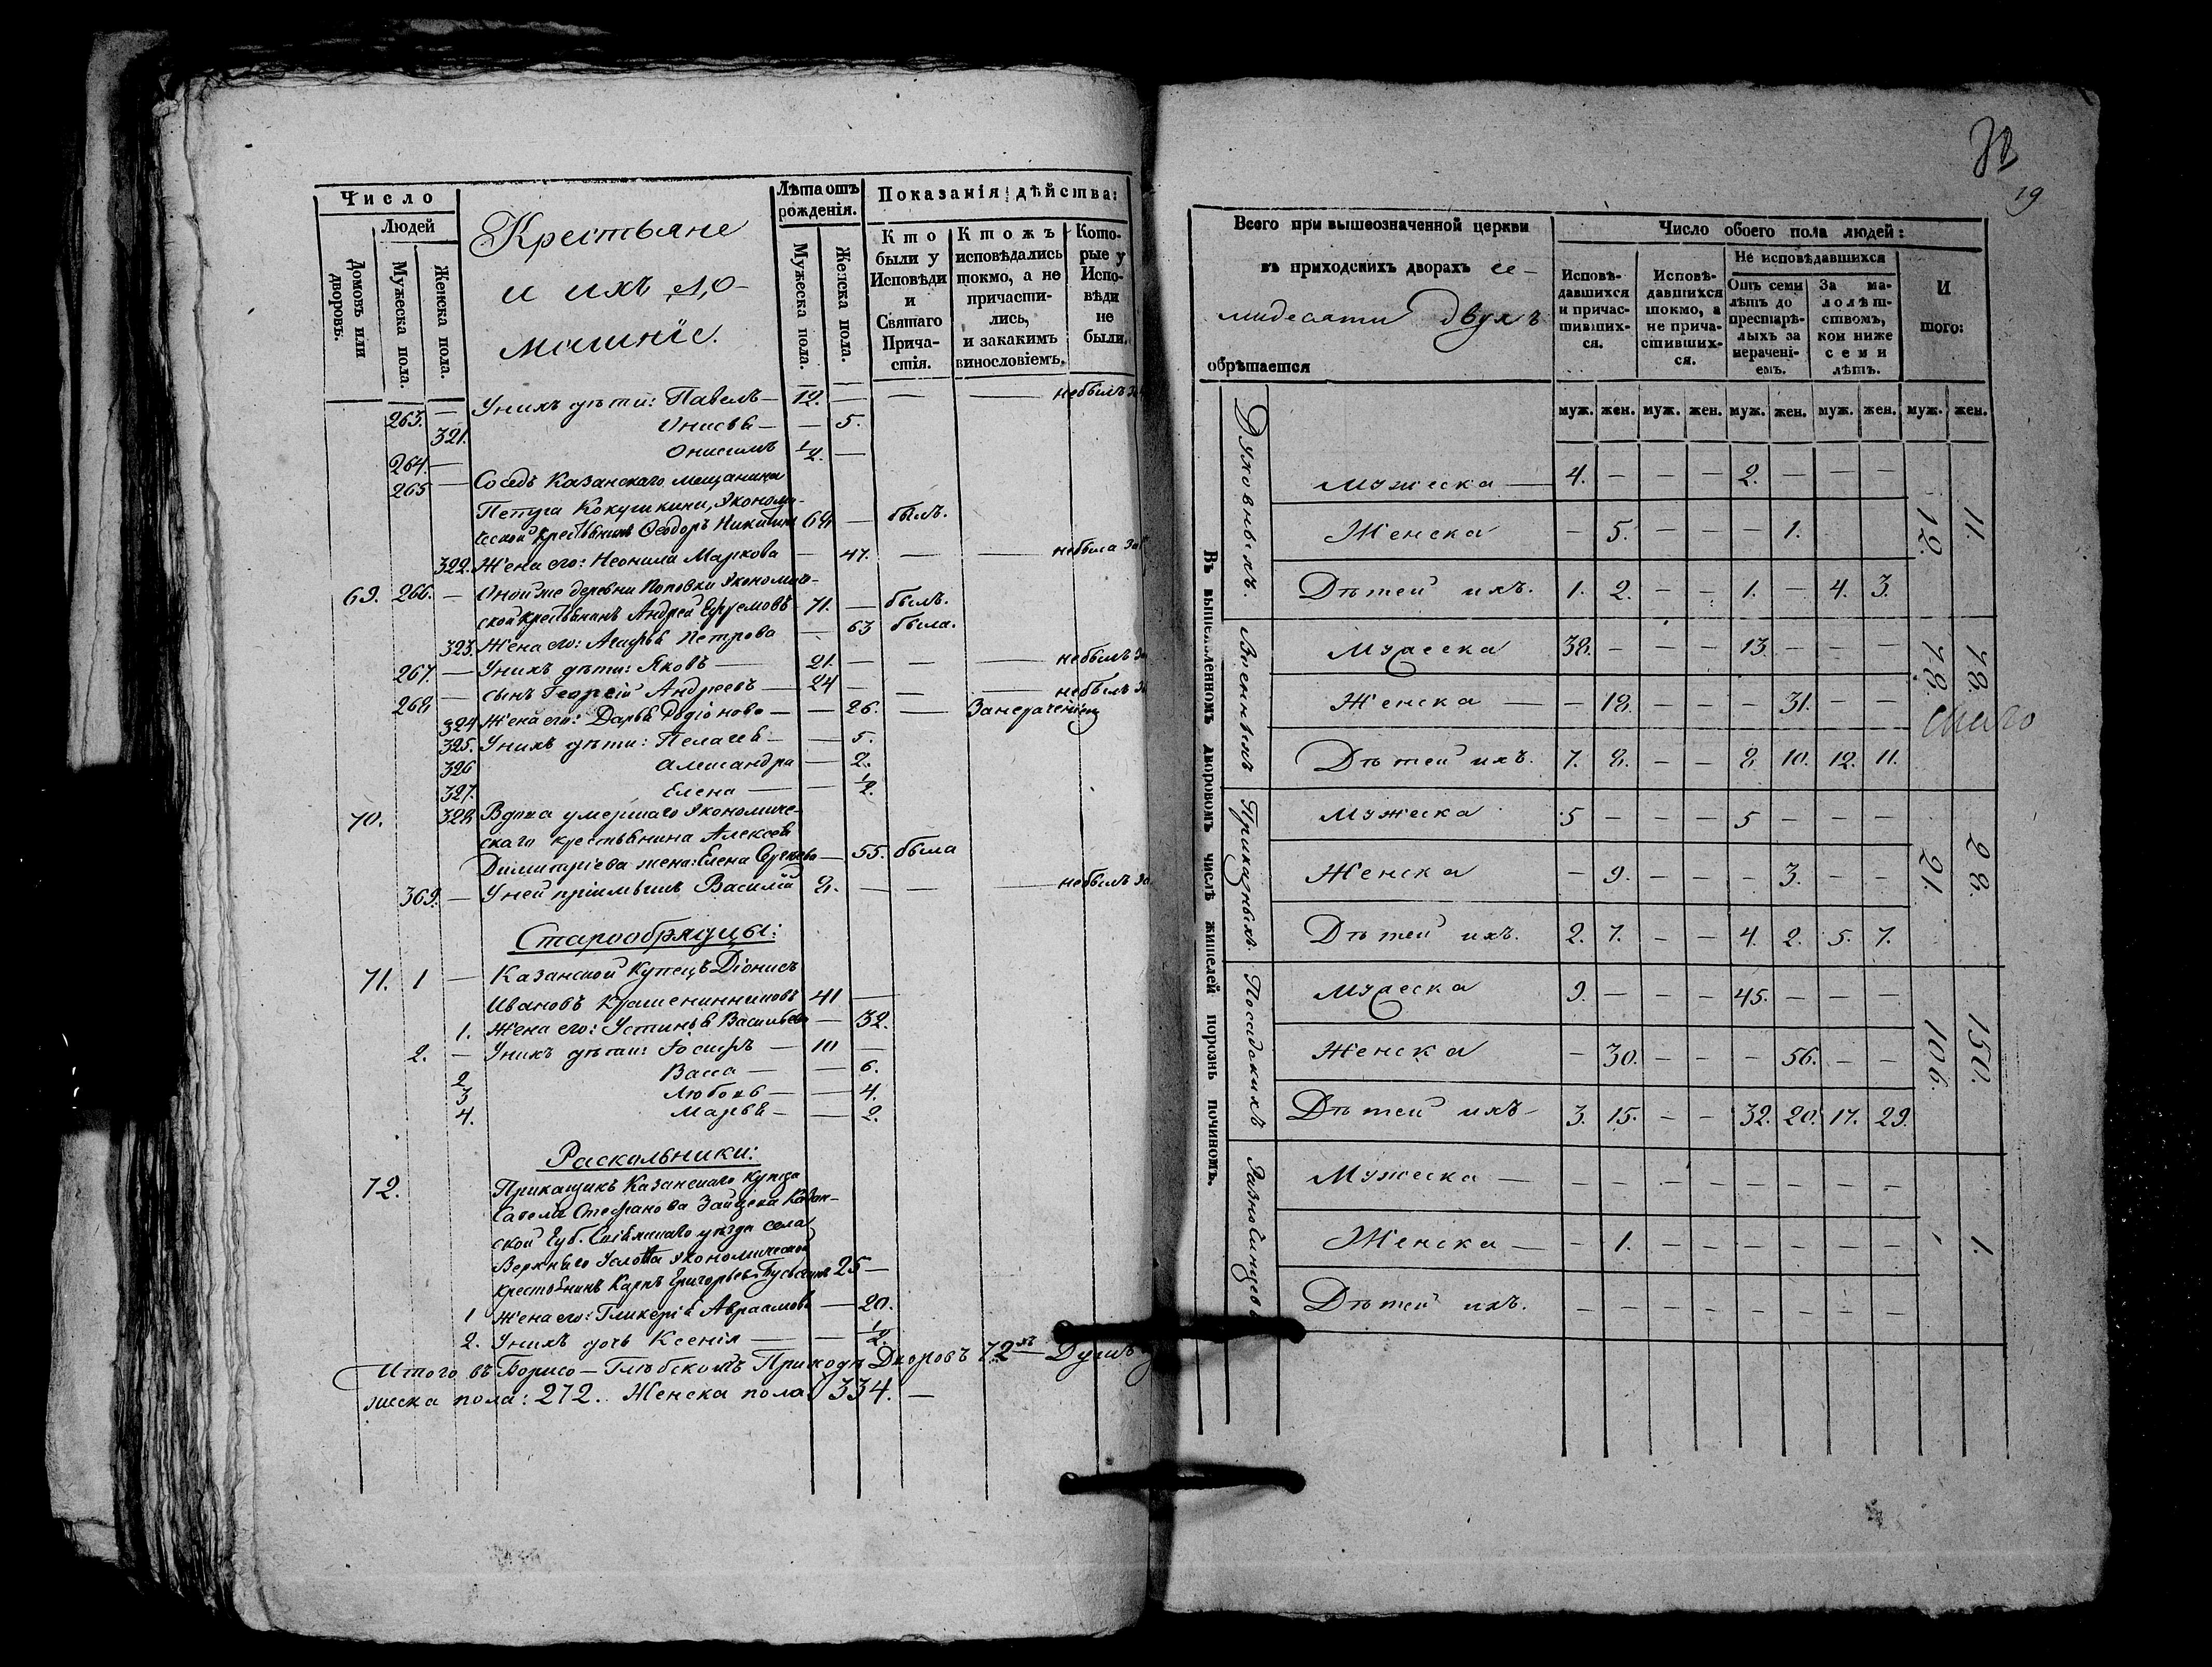 Число
Людей
Домовъ или дворовъ.
Мужеска пола.
Женска пола.
Крестьяне
и ихъ до-
машніе.
Лѣта отъ рожденія.
Мужеска пола.
Женска пола.
Показанія дѣйства:
Кто были у Исповѣди и Святаго Причастія.
Ктожъ исповѣдались токмо, а не причастились, и закакимъ винословіемъ.
Которые у Исповѣди не были.
263. — Унихъ дѣти: Павелъ — 12. — — — небылъ
321. Анисья — — 5.
264. — Онисимъ 1/2. —
265 — Соседъ Казанскаго мещанина
Петра Кокушкина, Экономи-
ческой крестьянинъ Ѳеодоръ Никитинъ 68 — былъ.
322. Жена его: Неонила Маркова — 47. — — небыла
69. 266. — Онойже деревни Поповки Экономиче-
ской крестьянинъ Андрей Ефремовъ 71. — былъ.
323. Жена его: Агафья Петрова — 63 была.
267. — Унихъ дѣти: Яковъ — 21. — — — небылъ
268 — сынъ Георгій Андреевъ — 24 — — — небылъ
324 Жена его: Дарья Родіонова — — 26. — Занераченіем
325. Унихъ дѣти: Пелагея — — 5.
326 Александра — 2.
327. Елена — — 1/2.
70. 328 Вдова умершаго Экономиче-
скаго крестьянина Алексея
Димитріева жена: Елена — 55. была
369. — Уней пріимышъ Василій 8. — — — небылъ
Старообрядцы:
71. 1 — Казанской Купецъ Діонисъ
Ивановъ Крашенинниковъ 41 —
1. Жена его: Устинья Васильева — 32.
2. — Унихъ дѣти: Іосифъ — 10 —
2 Васса — — 6.
3 Любовь — — 4.
4. Марья — — 2.
Раскольники:
72. Прикащикъ Казанскаго Купца
Савела Стефанова Зайцева Казан-
ской Губ. Свіяжскаго уѣзда села
Верхняго Услона Экономической
крестьянинъ Карпъ Григорьевъ 25 —
1 Жена его: Гликерія Авраамова — 20.
2. Унихъ дочь Ксенія — — 1/2.
Итого въ Борисо-Глѣбскомъ Приходѣ Дворовъ 72хъ — Душъ
жеска пола: 272. Женска пола 334. —
19
Всего при вышеозначенной церкви
въ приходскихъ дворахъ се-
мидесяти двухъ
обрѣтается
Число обоего пола людей:
Исповѣдавшихся и причастившихся.
Исповѣдавшихся токмо, а не причастившихся.
Не исповѣдавшихся
Отъ семи лѣтъ до престарѣлыхъ за нераченіемъ.
За малолѣтствомъ, кои ниже семи лѣтъ.
И того:
муж. жен. муж. жен. муж. жен. муж. жен. муж. жен.
Въ вышеявленномъ дворовомъ числѣ жителей порознь починомъ.
Духовныхъ.
Мужеска — 4. — — — 2. — — —
Женска — 5. — — — 1.
Дѣтей ихъ. 1. 2. — — 1. — 4. 3.
12. 11.
Военныхъ
Мужеска 38. — — — 13. — — —
Женска — — 18. — — — 31. — —
Дѣтей ихъ. 7. 8. — — 8 10. 12. 11.
78. 78.
Приказныхъ.
Мужеска 5 — — — 5 — — —
Женска — 9. — — — 3. — —
Дѣтей ихъ. 2. 7. — — 4. 2. 5. 7.
21. 28.
Посадскихъ
Мужеска 9. — — — 45. — — —
Женска — 30. — — — 56. — —
Дѣтей ихъ — 3. 15. — — 32. 20. 17. 29.
106. 150.
Разночинцевъ
Мужеска — — — — — — — — —
Женска — — 1. — — — — — —
Дѣтей ихъ. — — — — — — — —
1.